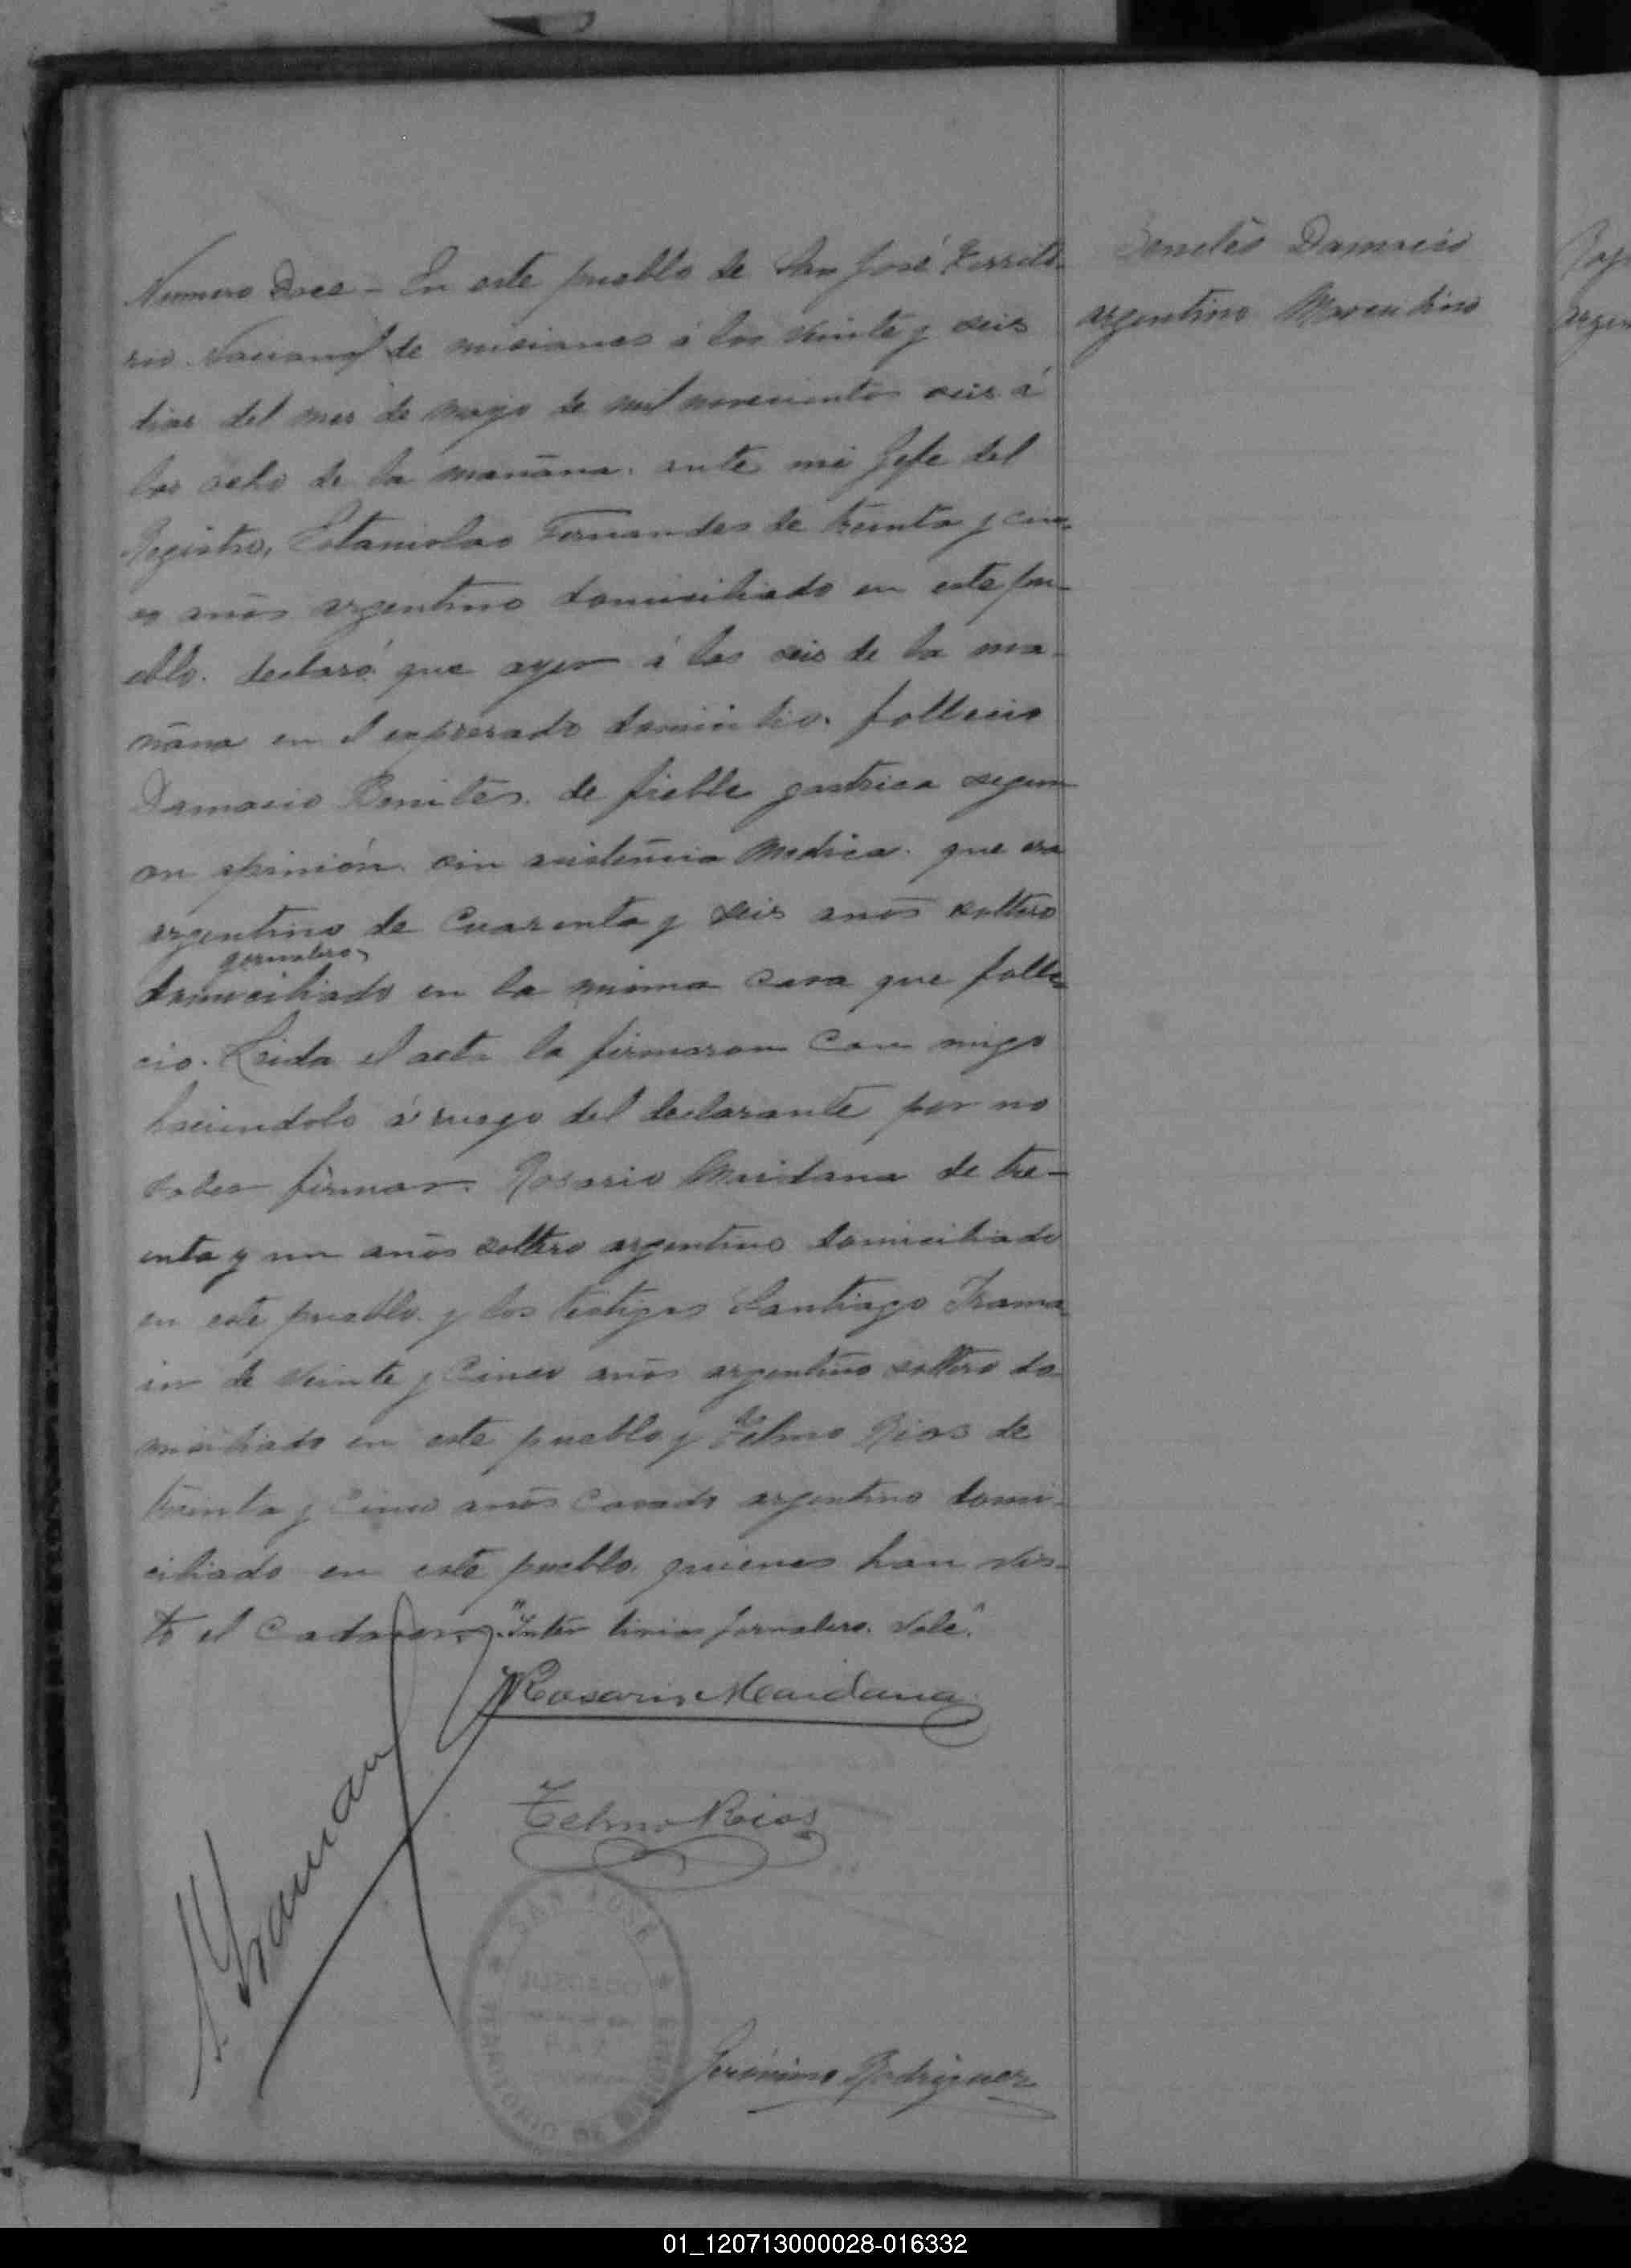 Numero Doce - En este pueblo de San José Territo-
rio Nacional de misiones á los veinte y seis
dias del mes de mayo de mil novecientos seis á
las ocho de la mañana. ante mi Jefe del
Registro, Estanislao Fernandes de treinta y cin-
co anõs argentino domiciliado en este pu-
eblo. declaró que ayer á las seis de la ma-
ñana en el expresado domicilio. fallecio
Damacio Benites. de fieble gastrica segun
su opinión. sin asistencia Medica. que era
argentino de Cuarenta y seis anõs soltero
jornalero,
domiciliado en la misma casa que falle-
cio. Leida el acta la firmaron Con migo
haciendolo á ruego del declarante por no
saber firmar. Rosario Maidana de tre-
inta y un anõs soltero argentino domiciliado
en este pueblo. y los testigos Santiago
de veinte y Cinco anõs argentino soltero do-
miciliado en este pueblo y Telmo Rios de
treinta y Cinco anõs Casado argentino domi-
ciliado en este pueblo. quienes han vis-
to el Cadaver. "Inter linias jornalero. Vale."
Rosario Maidana
Telmo Rios
SAN JOSE
TERRITORIO DE
Jerónimo Rodriguez
Benites Damacio
argentino
01_120713000028-016332